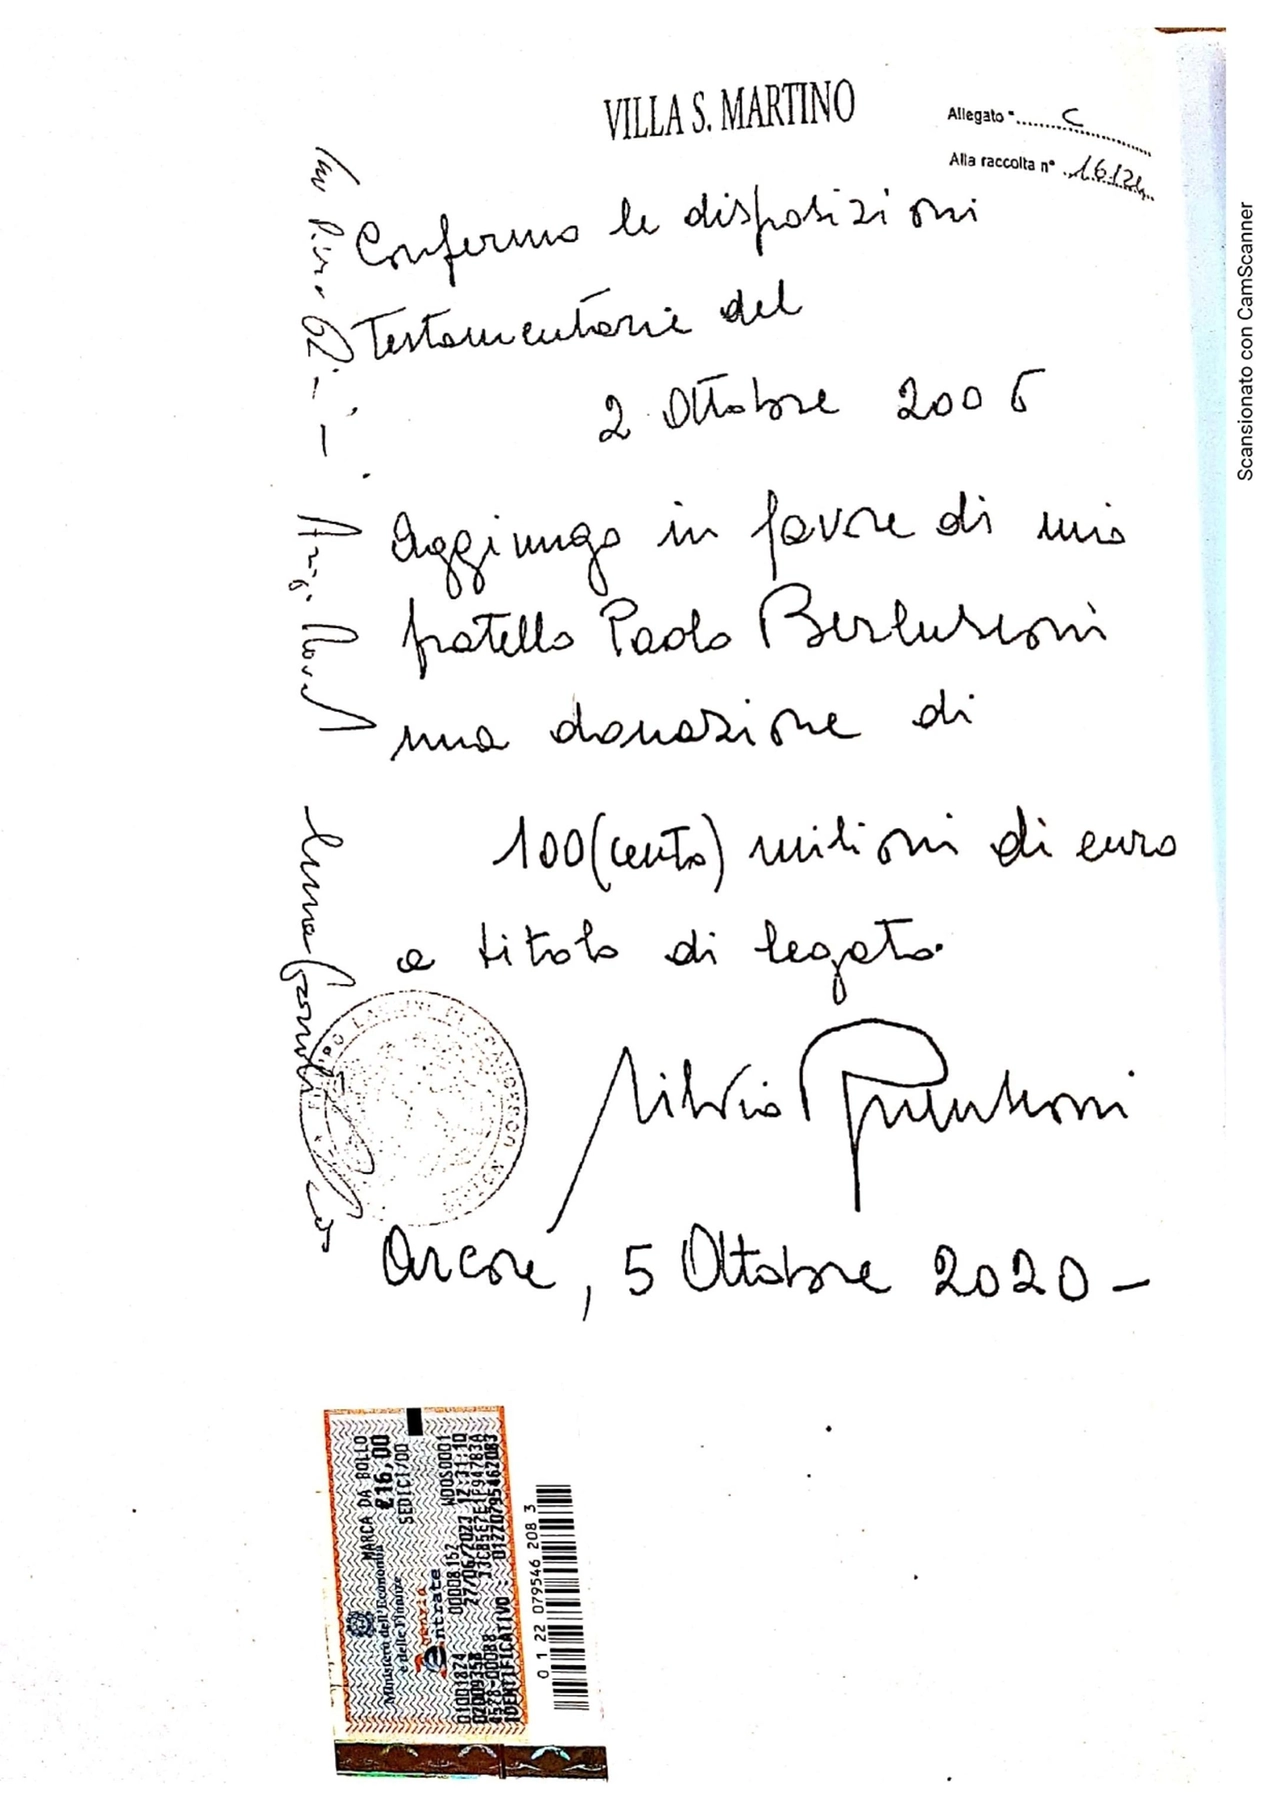 VILLA S. MARTINO
Allegato "........C........
Alla raccolta n° ..16124..
Confermo le disposizioni
Testamentarie del
2 Ottobre 2006
Aggiungo in favore di mio
fratello Paolo Berlusconi
una donazione di
100 (cento) milioni di euro
a titolo di legato.
Silvio Berlusconi
Arcore, 5 Ottobre 2020 -
Scansionato con CamScanner
Ministero dell'Economia
e delle Finanze
MARCA DA BOLLO
€16,00
SEDICI/00
Agenzia
Entrate
01001874 00008152 W00S0001
27/06/2023 12:31:10
4578-00088
IDENTIFICATIVO : 01220795462083
0 1 22 079546 208 3